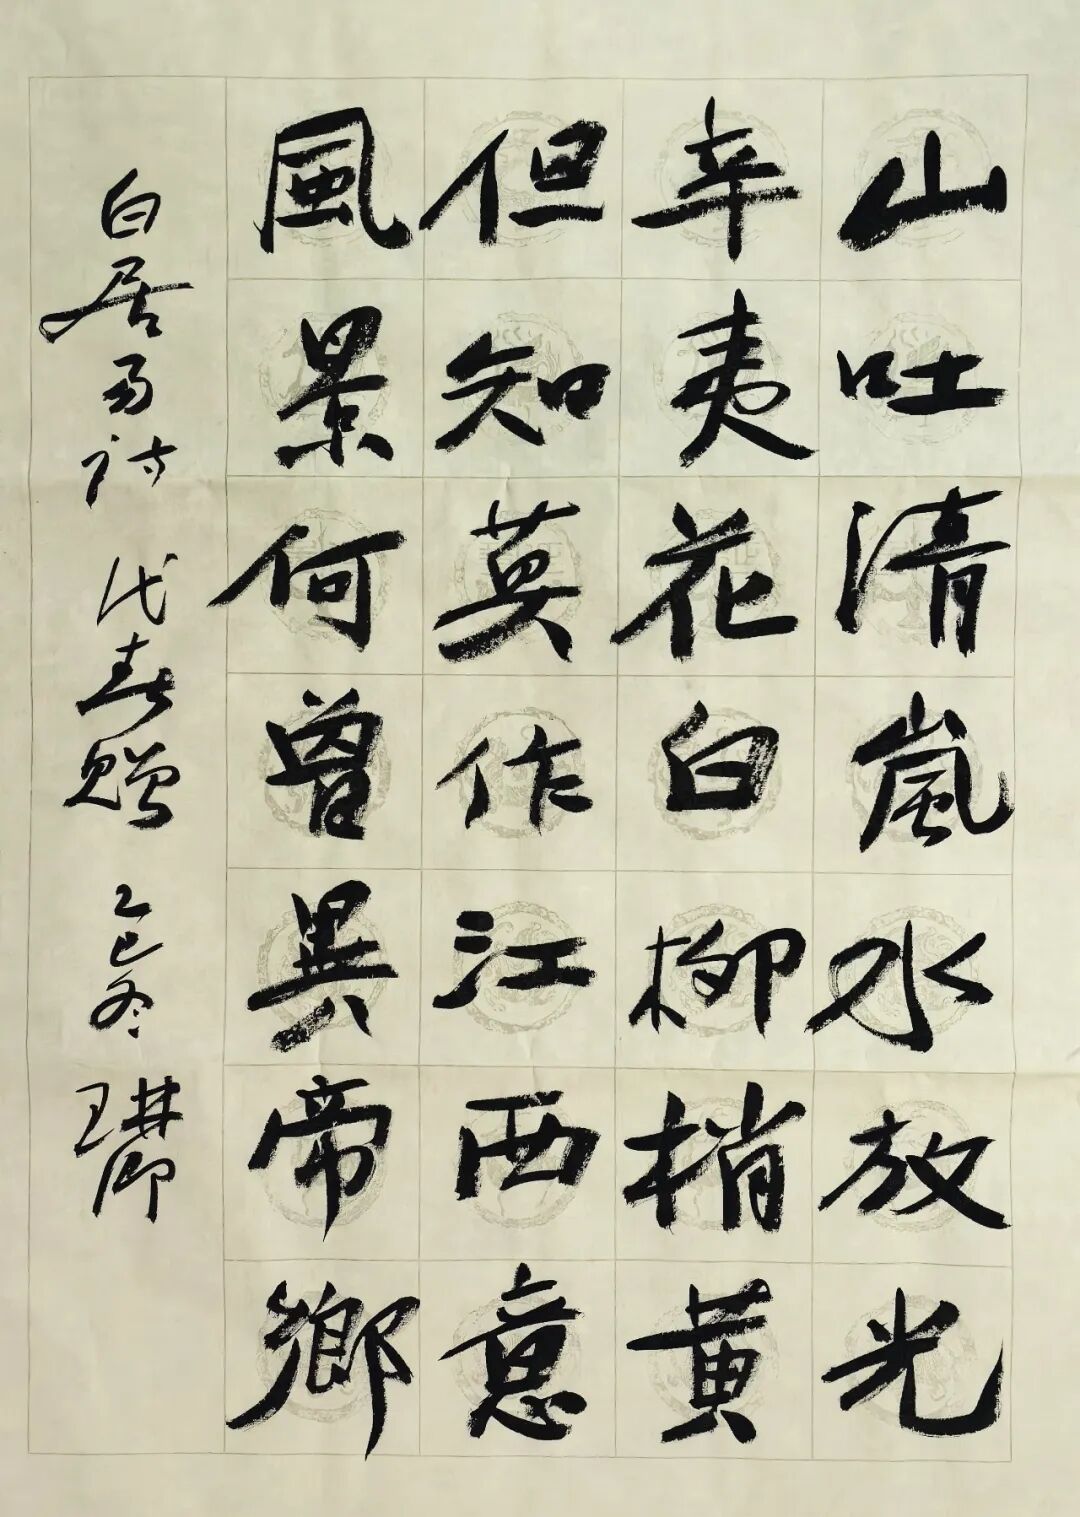 山吐清嵐水放光
辛夷花白柳梢黄
但知莫作江西意
風景何曾異帝鄉
白居易詩 代春贈 乙巳冬 琪卿